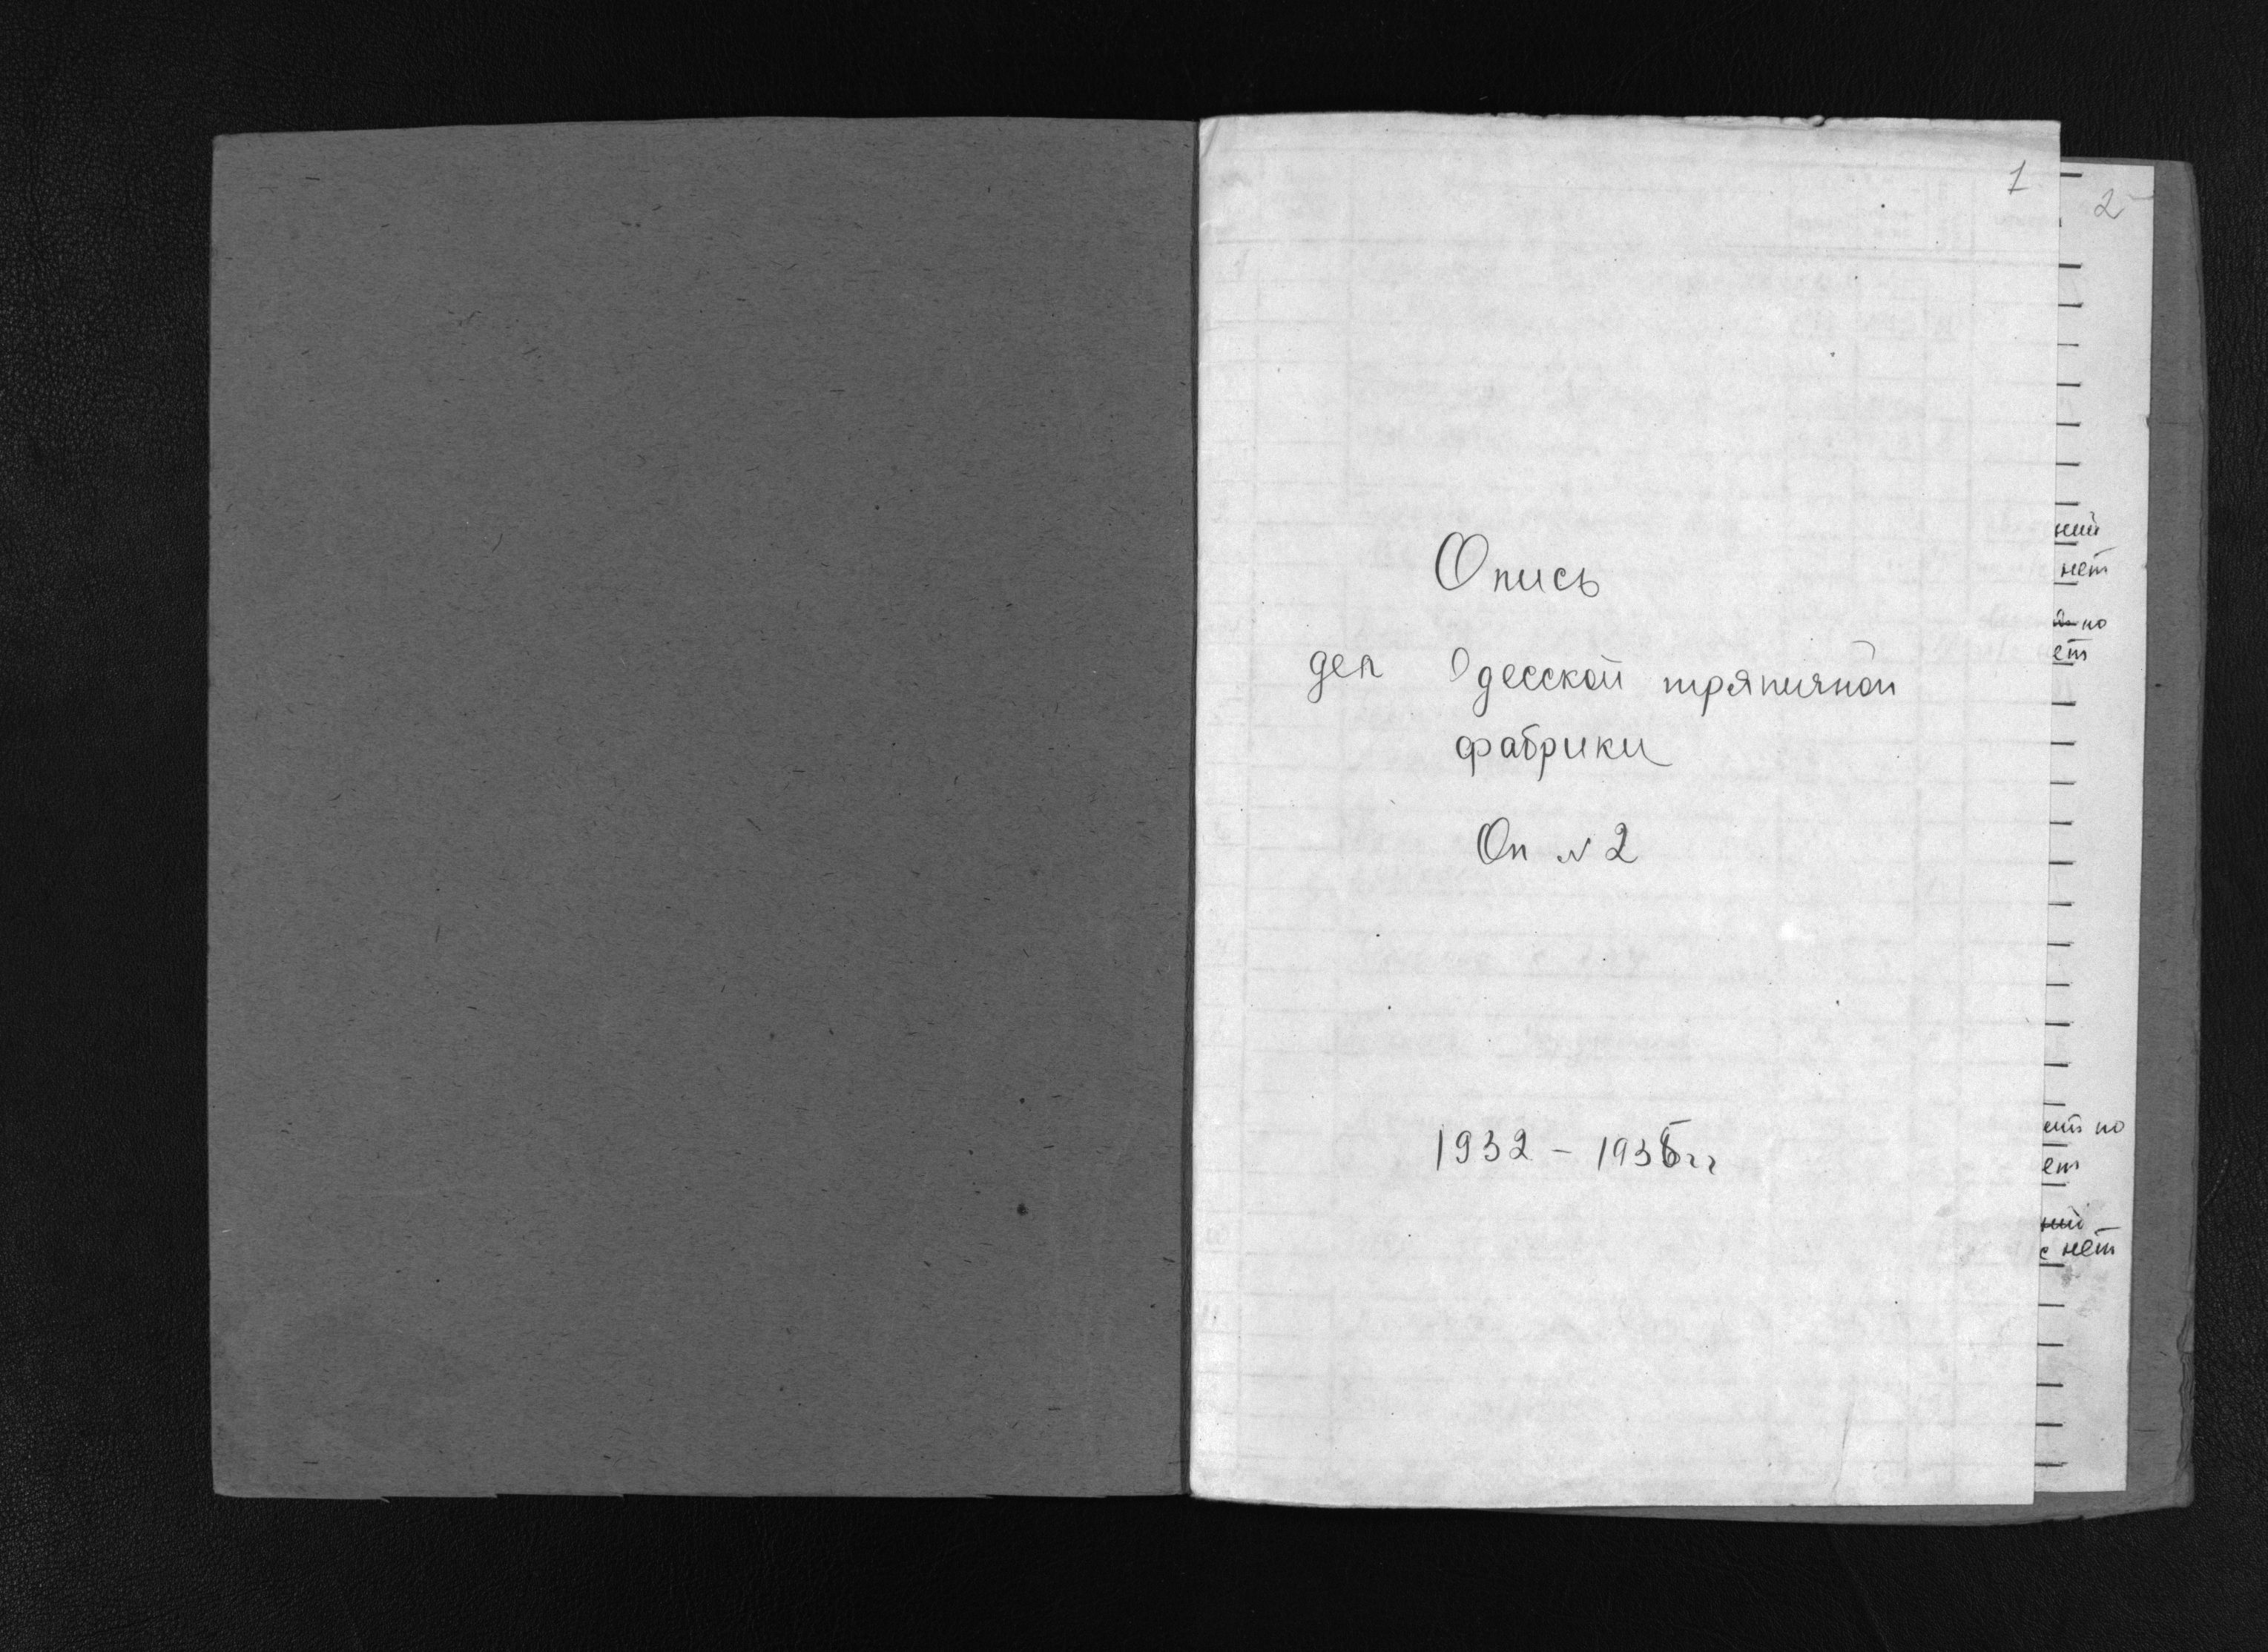 1
Опись
дел Одесской тряпичной
фабрики
Оп № 2
1932 – 1935гг
2
ний
нет
но
ет
но
ет
ний
с нет